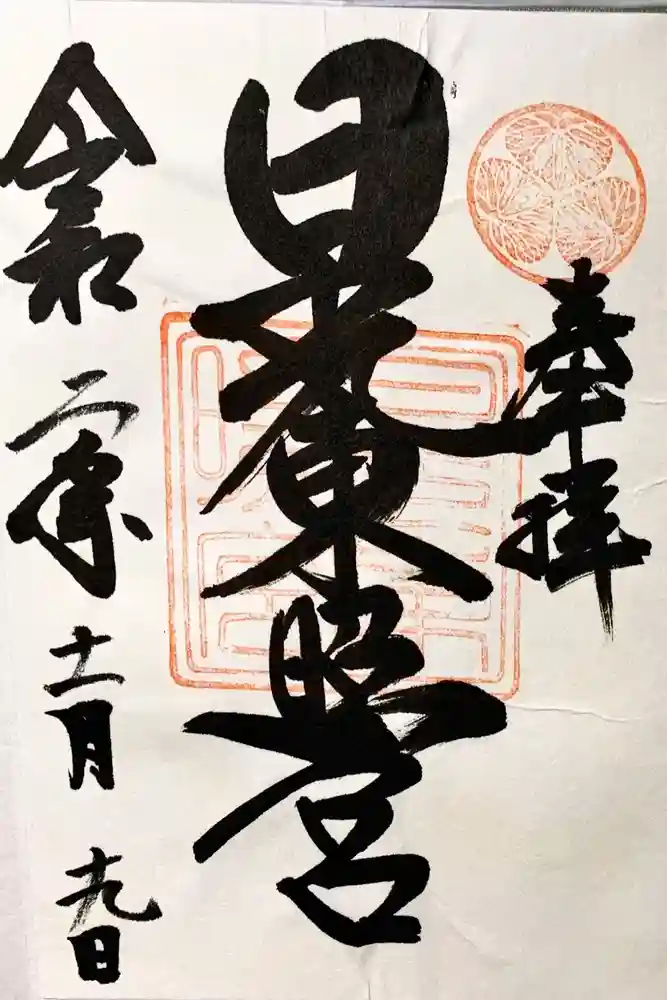 奉拝
日光東照宮
令和二年十一月十九日